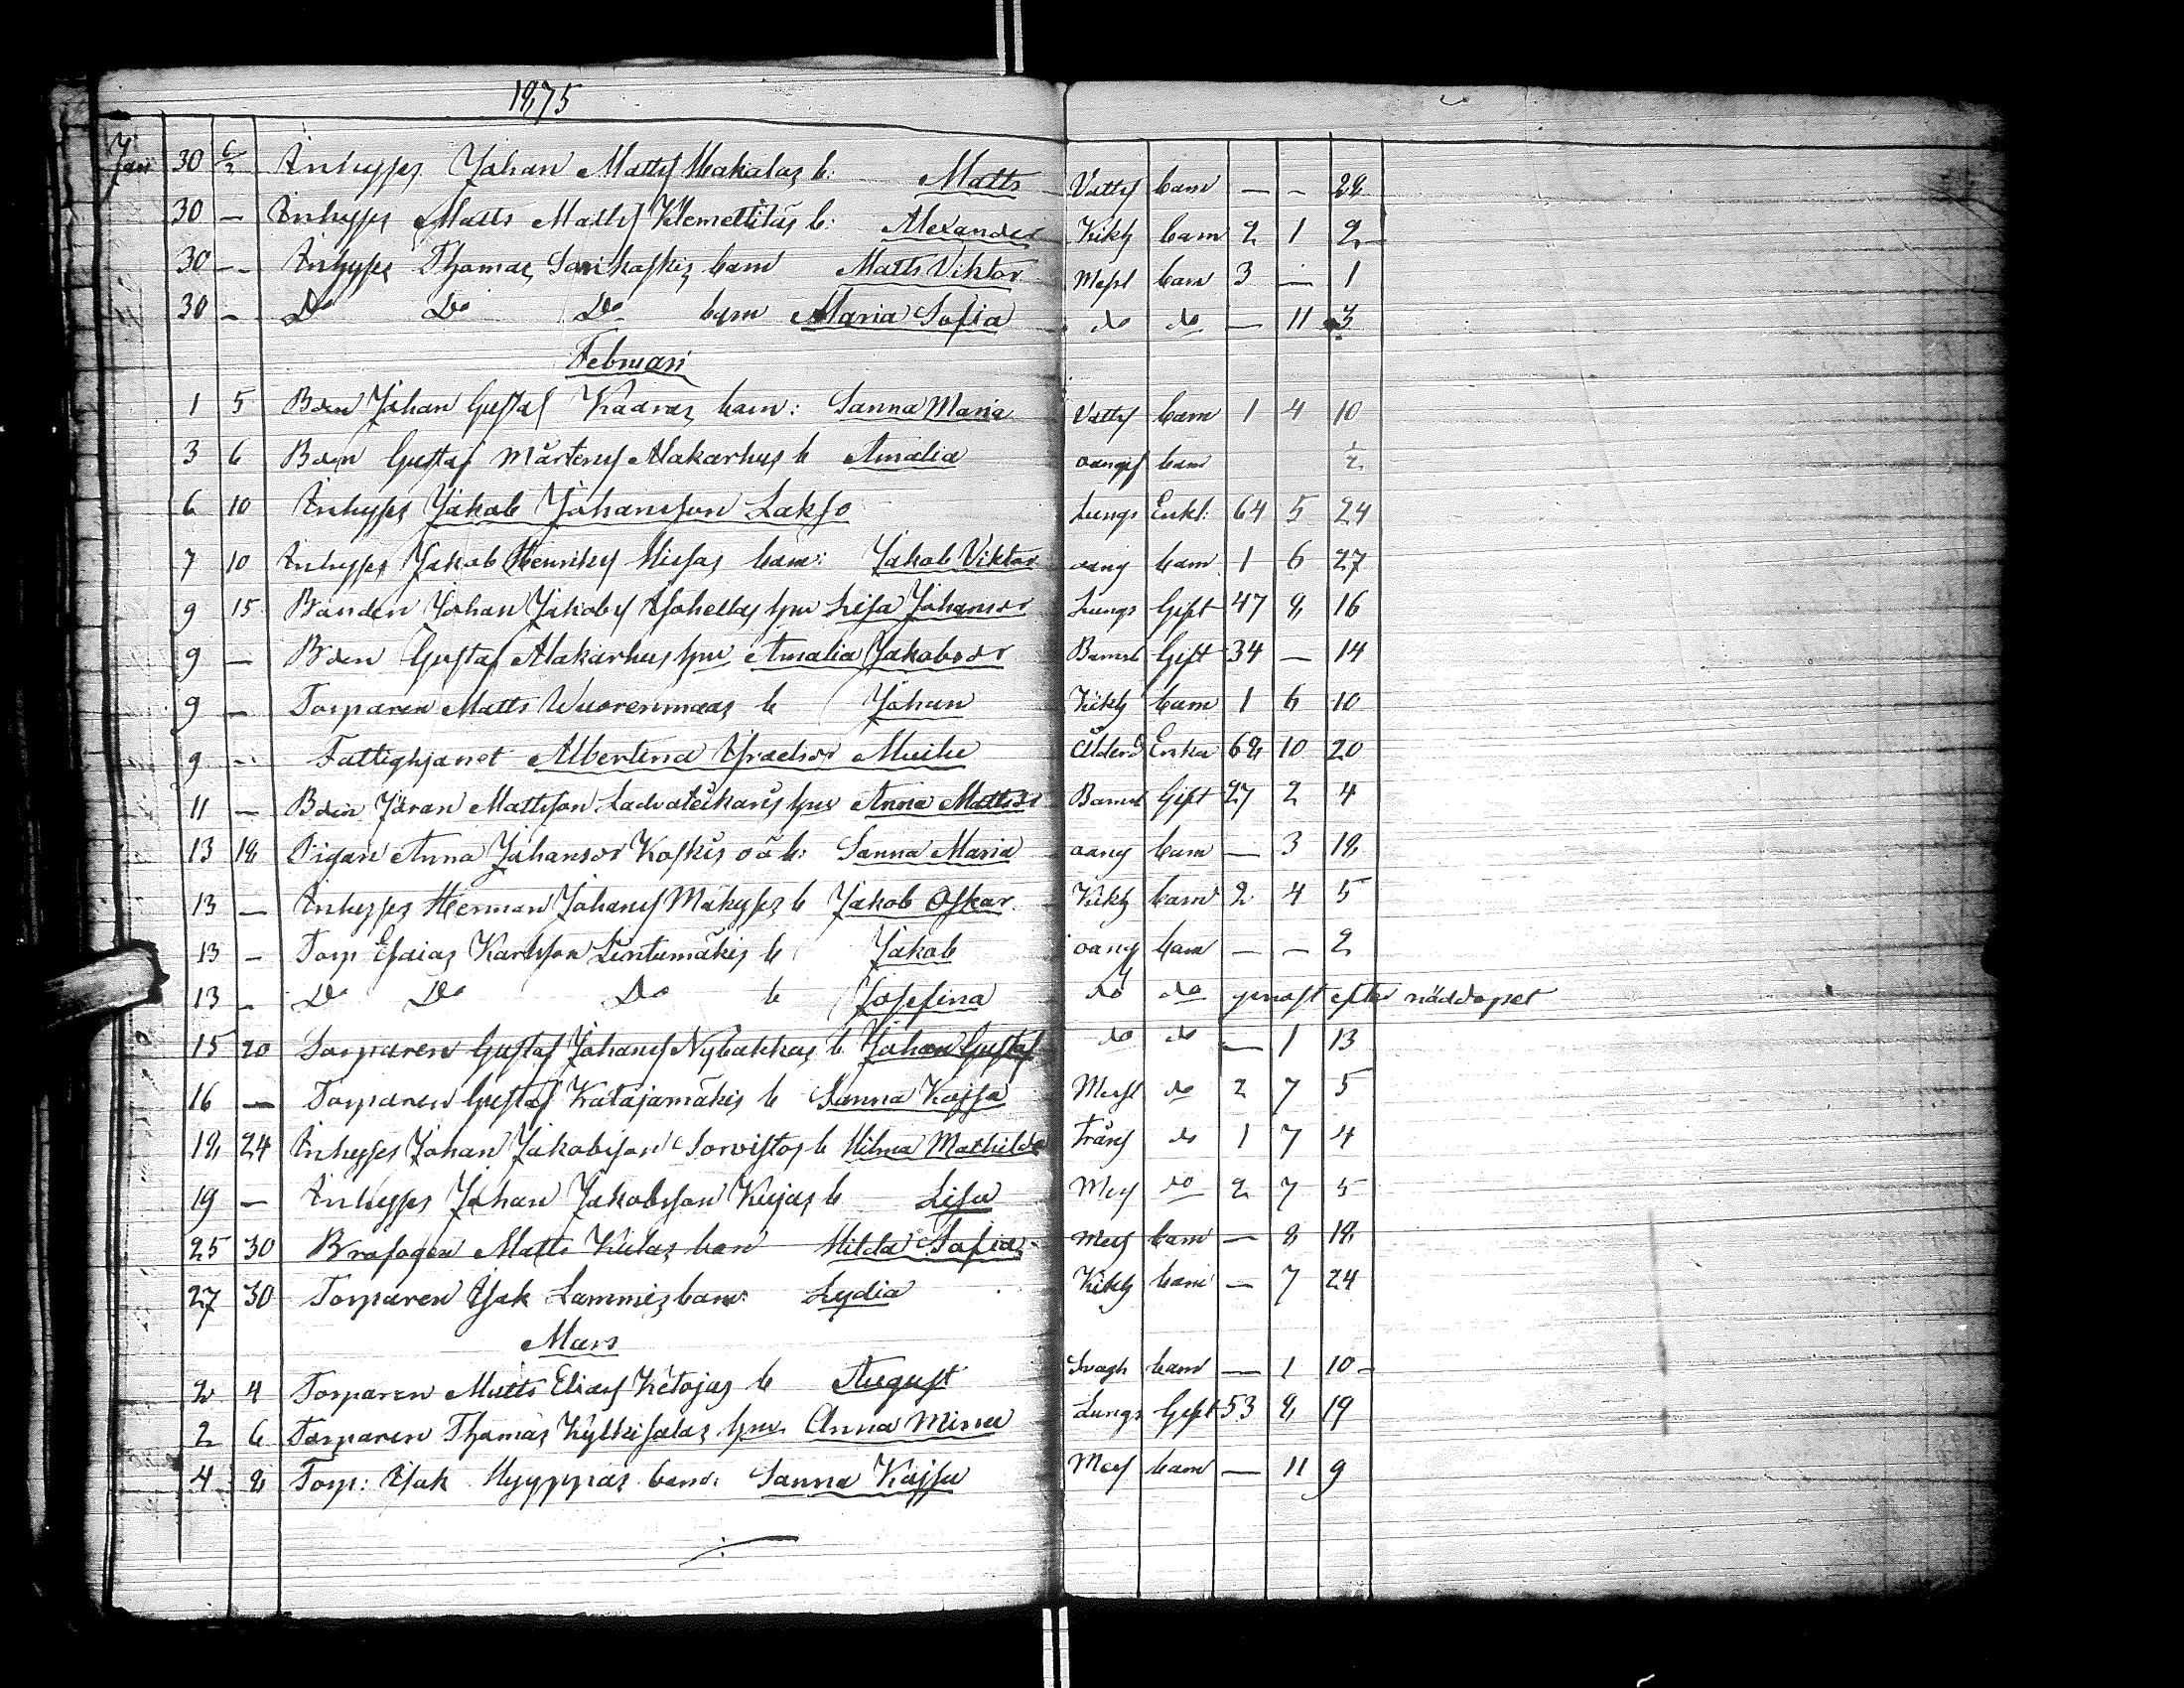 1875
Jan 30 6/2 Inhyses Johan Matts Makalas b: Matts Vatts barn — — 28
30 — Inhyses Matts Matts Klemettilas b: Alexander Kikh barn 2 1 2
30 — Inhyses Thomas Sarikoskis barn Matts Viktor Messl barn 3 — 1
30 — Do Do Do barn Maria Sofia do do — 11 3
Februari
1 5 Bden Johan Gustaf Kaaras barn: Sanna Maria Vatts barn 1 4 10
3 6 Bden Gustaf Mårtens Alakarhus b Amalia oangif barn 1/2
6 10 Inhyses Jakob Johansson Lakso Lungs Enkl: 64 5 24
7 10 Inhyses Jakob Henriks barn: Jakob Viktor oang barn 1 6 27
9 15 Bonden Johan Jakobs hru Lisa Johansdr Lungs Gift 47 8 16
9 — Bden Gustaf Alakarhus hru Amalia Jakobsdr Barnsb Gift 34 — 14
9 — Torparen Matts Wuorenmaas b Johan Kikh barn 1 6 10
9 — Fattighjonet Albertina Israelsdr Ålderd Enka 68 10 20
11 — Bden Göran Mattsson hru Anna Mattsdr Barnsb Gift 27 2 4
13 18 Pigan Anna Johansdr Koskis oä b: Sanna Maria oang barn — 3 18
13 — Inhyses Herman Johans Makyses b Jakob Oskar Kikh barn 2 4 5
13 — Torp Esaias Karlsson Lintumäkis b Jakob oang barn — — 2
13 — Do Do Do b Josefina do do genast efter nöddopet
15 20 Torparen Gustaf Johans Nybakkas b Johan Gustaf do do — 1 13
16 — Torparen Gustaf Katajamäkis b Sanna Kajsa Messl do 2 7 5
18 24 Inhyses Johan Jakobsson Sorvistos b Hilma Mathilda do 1 7 4
19 — Inhyses Johan Jakobsson Kujas b Lisa Mess do 2 7 5
25 30 Matts barn Hilda Sofia Mess barn — 8 18
27 30 Torparen Isak Lammis barn: Lydia Kikh barn — 7 24
Mars
2 4 Torparen Matts Elias Ketojas b August Svagh barn — 1 10
2 6 Torparen Thomas Kylkisalas hru Anna Mina Lungs Gift 53 8 19
4 8 Torp: Isak Hyyppas barn: Sanna Kajsa Mess barn — 11 9